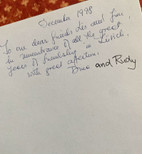 December 1998
To our dear friends Les and Fran,
in remembrance of all the great
years of friendship in Zurich.
with great affection.
and Rudy